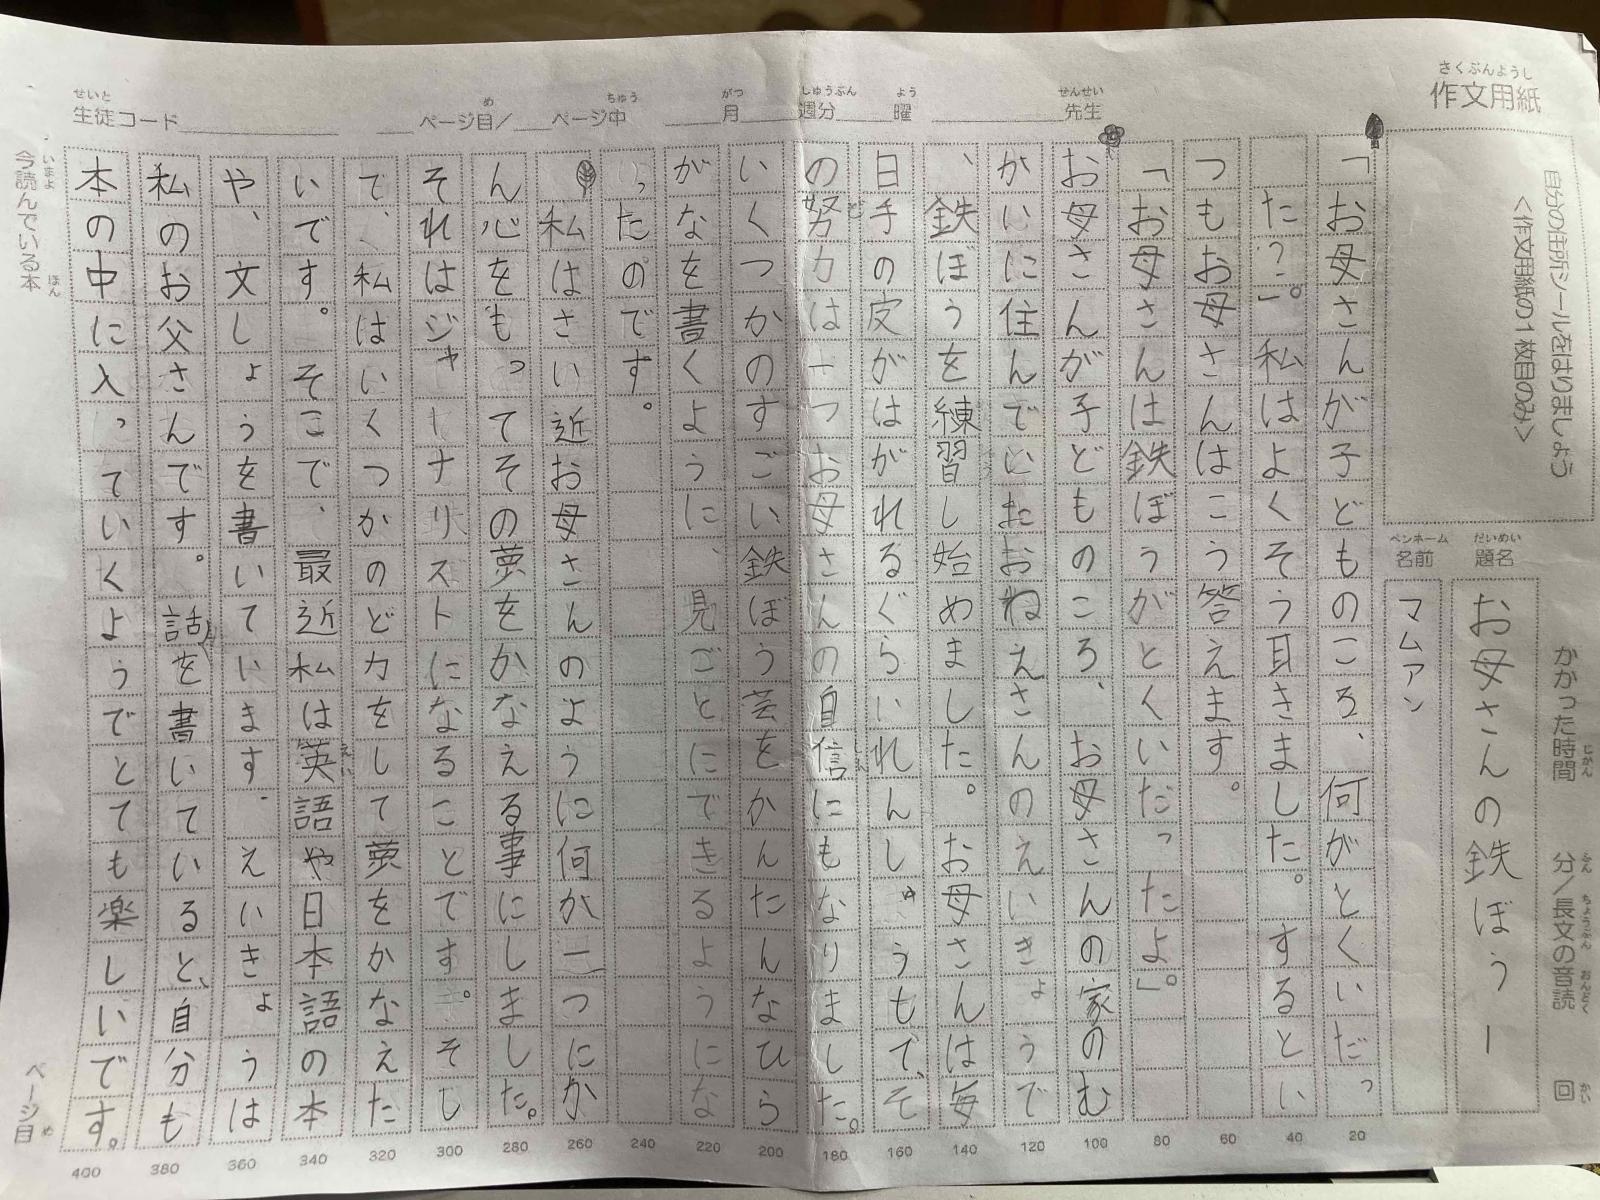 さくぶんようし
作文用紙
せいと
生徒コード
め ちゅう
ページ目/ ページ中
がつ しゅうぶん よう
月 週分 曜
せんせい
先生
自分の住所シールをはりましょう
<作文用紙の1枚目のみ>
だいめい
題名
お母さんの鉄ぼう
ペンネーム
名前
マムアン
かかった時間 分/長文の音読 回
じかん ふん ちょうぶん おんどく かい
「お母さんが子どものころ、何がとくいだっ
た?」。私はよくそう耳きました。するとい
つもお母さんはこう答えます。
「お母さんは鉄ぼうがとくいだったよ」。
お母さんが子どものころ、お母さんの家のむ
かいに住んでいたおねえさんのえいきょうで
、鉄ぼうを練習し始めました。お母さんは毎
日手の皮がはがれるぐらいれんしゅうもて、そ
の努力は一つお母さんの自信にもなりました。
いくつかのすごい鉄ぼう芸をかんたんなひら
がなを書くように、見ごとにできるようにな
ったのです。
私はさい近お母さんのように何か一つにか
ん心をもってその夢をかなえる事にしました。
それはジャーナリストになることです。そし
て、私はいくつかのど力をして夢をかなえた
いです。そこで、最近私は英語や日本語の本
や、文しょうを書いています。えいきょうは
私のお父さんです。話を書いていると、自分も
本の中に入っていくようでとても楽しいです。
20
40
60
80
100
120
140
160
180
200
220
240
260
280
300
320
340
360
380
400
いまよ ほん
今読んでいる本
ページ目
め